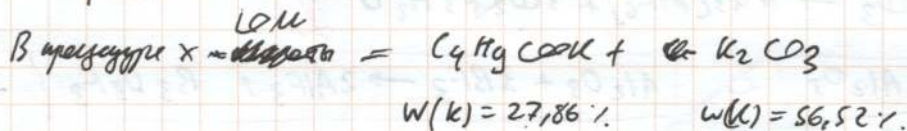 КОН
В процедуре X = C4H9COOK + K2CO3
W(K) = 27,86 % W(K) = 56,52 %.